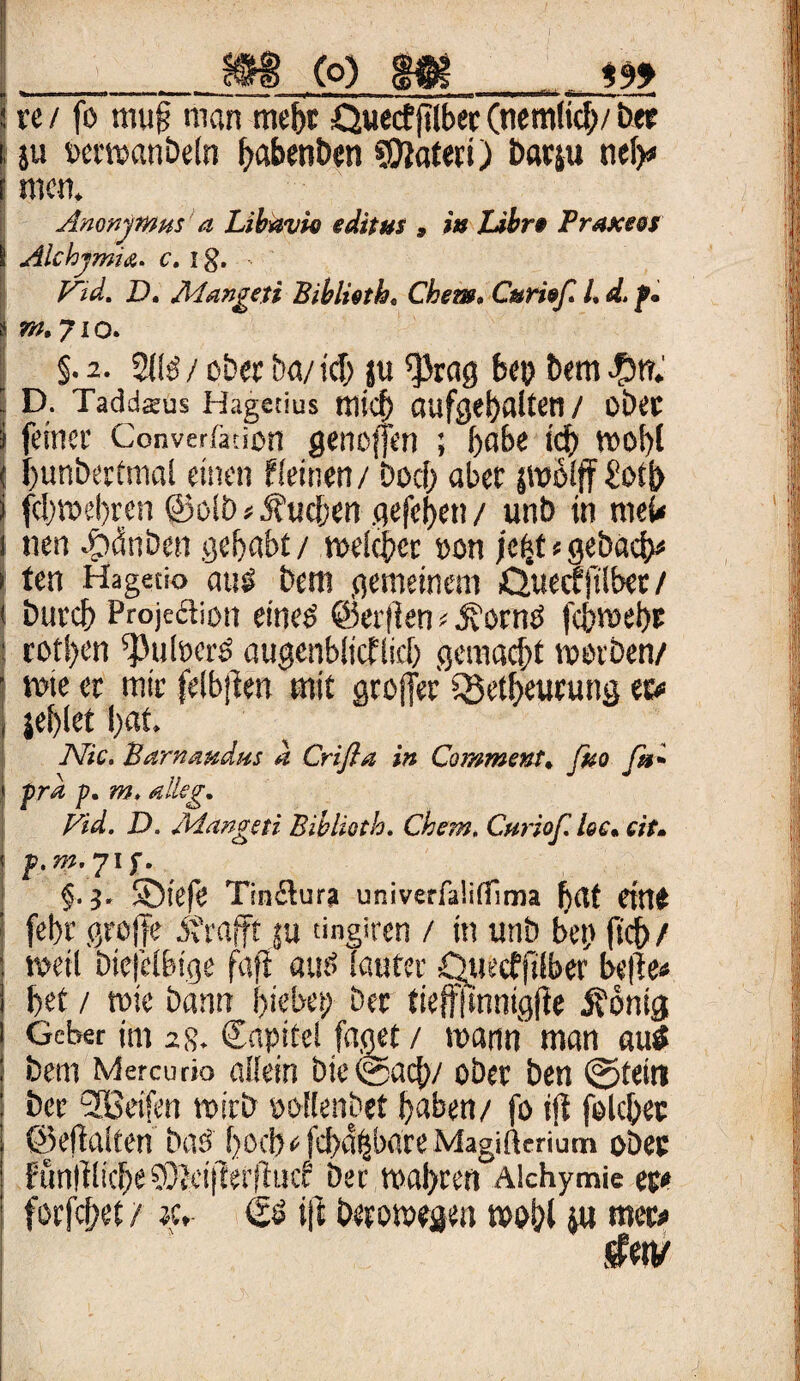 (o) 199
re / so muß man mehr Quecksilber (nemlich / der
zu verwandeln habenden Materi) darzu neh-
men.
Anonymus a Libavio editus, in Libro Praxeos
Alchymiæ. c. 18.
Vid. D. Mangeti Biblioth. Chem. Curios. l. d. p.
m. 710.
§. 2. Als / oder da / ich zu Prag bey dem Hrn.
D. Taddæus Hagetius mich aufgehalten / oder
seiner Conversation genossen ; habe ich wohl
hundertmal einen kleinen / doch aber zwölff Loth
schwehren Gold-Kuchen gesehen / und in mei-
nen Händen gehabt / welcher von jetzt-gedach-
ten Hagetio aus dem gemeinem Quecksilber /
durch Projection eines Gersten-Korns schwehr
rothen Pulvers augenblicklich gemacht worden /
wie er mir selbsten mit grosser Betheurung er-
zehlet hat.
Nic. Barnaudus à Crista in Comment. suo su-
prà p. m. alleg.
Vid. D. Mangeti Biblioth. Chem. Curios. loc. cit.
p. m. 715.
§. 3. Diese Tinctura universalissima hat eine
sehr grosse Krafft zu tingiren / in und bey sich /
weil dieselbige fast aus lauter Quecksilber beste-
het / wie dann hiebey der tieffsinnigste König
Geber im 28. Capitel saget / wann man aus
dem Mercurio allein die Sach / oder den Stein
der Weisen wird vollendet haben / so ist solcher
Gestalten das hoch-schätzbare Magisterium oder
künstliche Meisterstuck der wahren Alchymie er-
forschet / ꝛc. Es ist derowegen wohl zu mer-
cken /